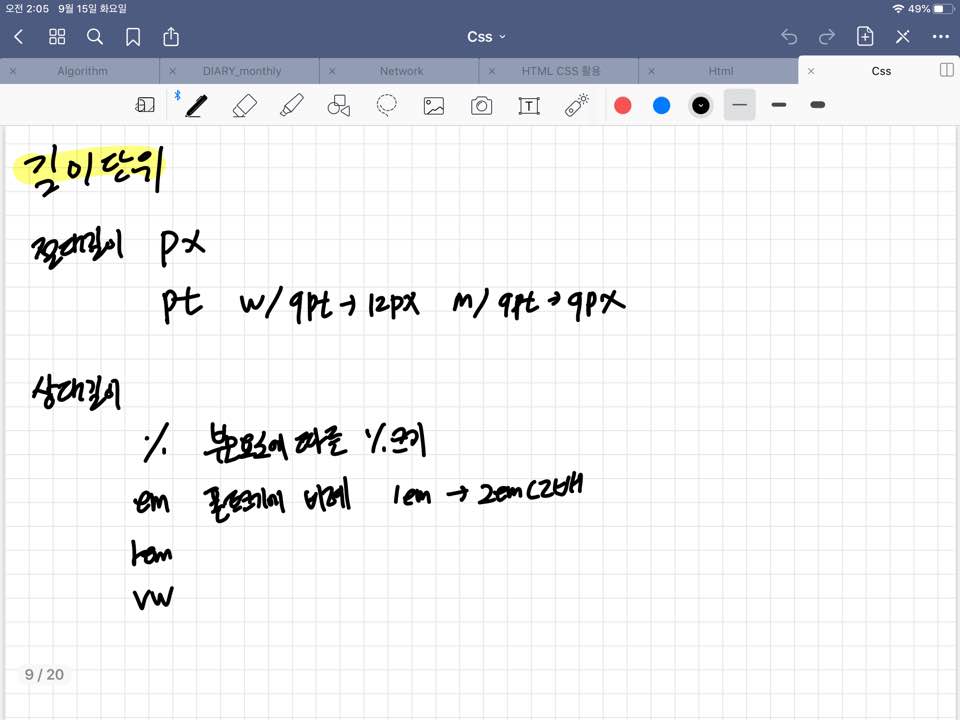 오전 2:05 9월 15일 화요일 49%
Css
Algorithm DIARY_monthly Network HTML CSS 활용 Html Css
길이단위
절대길이 px
pt w/9pt → 12px m/9pt → 9px
상대길이
% 부모요소에 따른 % 크기
em 폰트크기에 비례 1em → 2em (2배
rem
vw
9 / 20